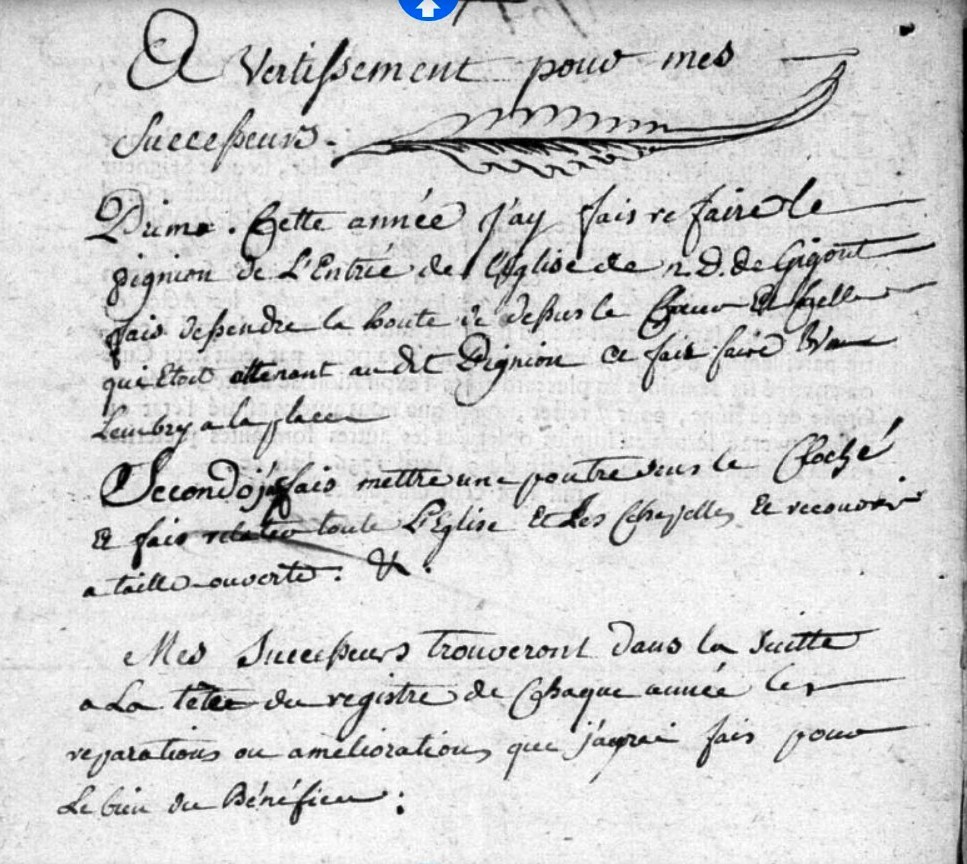 Avertissement pour mes
Successeurs.
Primo. Cette année j'ay fais refaire le
pignion de L'Entrée de l'église de n. D. de Gigout
fais dependre la voute de dessus le Coeur Et Celle
qui Etoit attenant au dit Pignion Ce fais faire Un
Lembry a la place
Secondo j'ay fais mettre une poutre sous le Cloché
Et fais relatter toute L'Eglise Et Les Chapelles Et recouvrir
a taille ouverte. &.
Mes Successeurs trouveront dans la suitte
a La tétee du registre de Chaque année les
reparations ou ameliorations que j'ayrai fais pour
Le bien du Bénéfice :